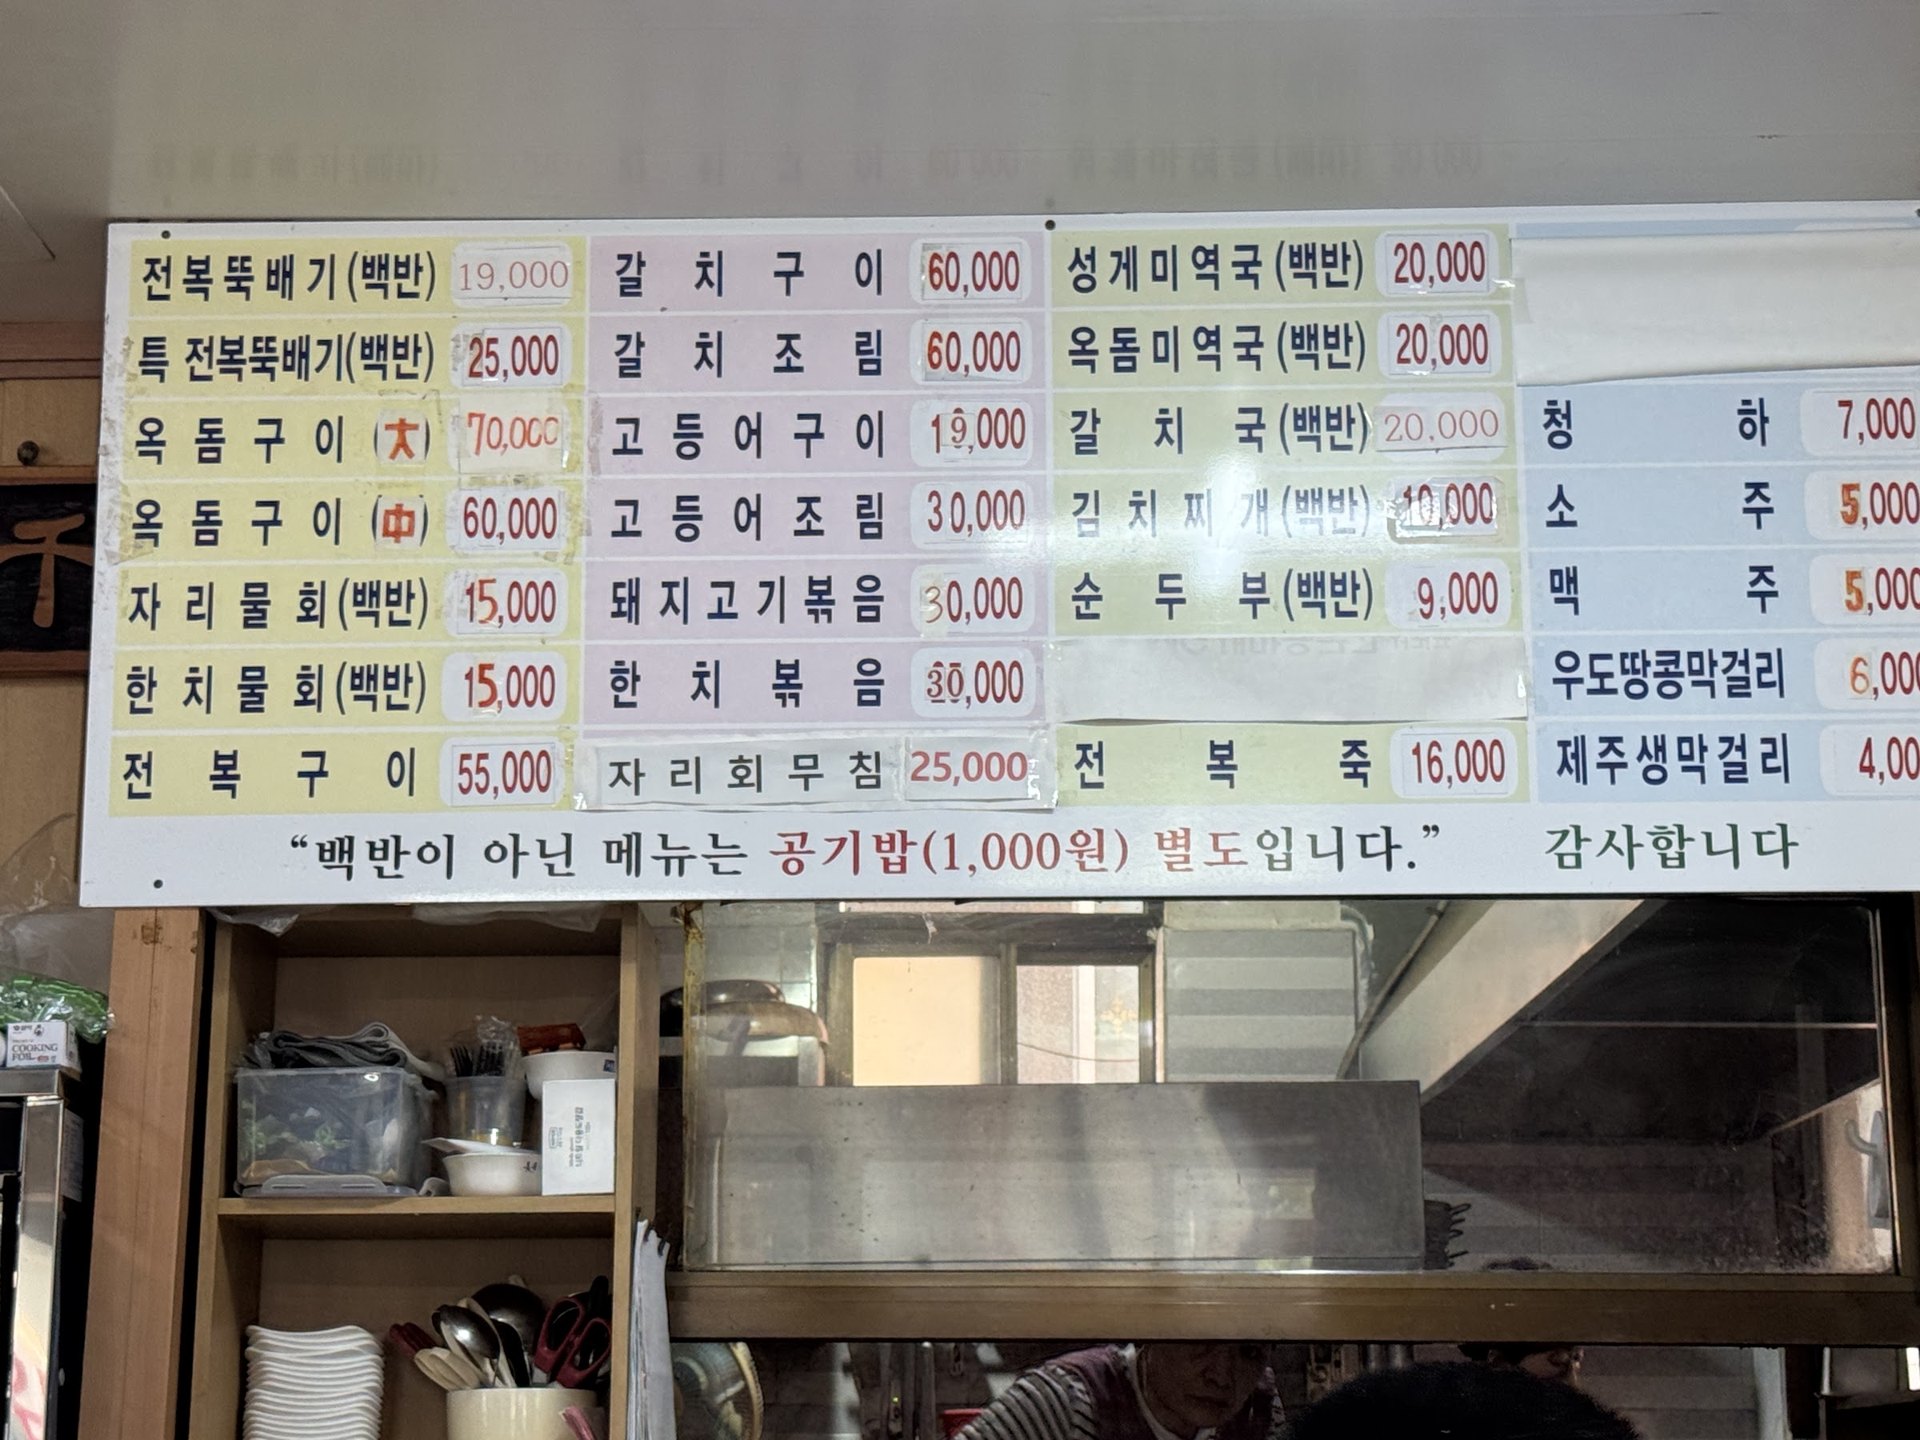 전복뚝배기(백반) 19,000
특 전복뚝배기(백반) 25,000
옥돔구이 (大) 70,000
옥돔구이 (中) 60,000
자리물회(백반) 15,000
한치물회(백반) 15,000
전복구이 55,000
갈치구이 60,000
갈치조림 60,000
고등어구이 19,000
고등어조림 30,000
돼지고기볶음 30,000
한치볶음 30,000
자리회무침 25,000
성게미역국(백반) 20,000
옥돔미역국(백반) 20,000
갈치국(백반) 20,000
김치찌개(백반) 10,000
순두부(백반) 9,000
전복죽 16,000
청하 7,000
소주 5,000
맥주 5,000
우도땅콩막걸리 6,000
제주생막걸리 4,00
“백반이 아닌 메뉴는 공기밥(1,000원) 별도입니다.” 감사합니다
千
COOKING
FOIL